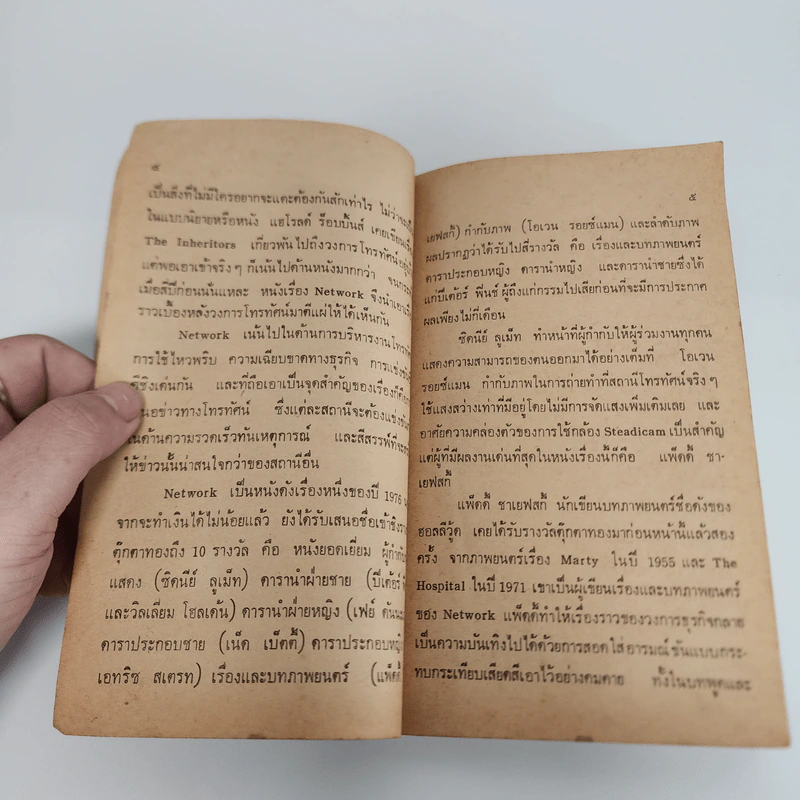 ๔
เป็นสิ่งที่ไม่มีใครอยากจะแตะต้องกันสักเท่าไร ไม่ว่าจะ
ในแบบนิยายหรือหนัง แฮโรลด์ ร็อบบิ้นส์ เคยเขียน
The Inheritors เกี่ยวพันไปถึงวงการโทรทัศน์
แต่พอเอาเข้าจริง ๆ ก็เน้นไปด้านหนังมากกว่า
เมื่อสี่ปีก่อนนั่นแหละ หนังเรื่อง Network จึงนำเอา
ราวเบื้องหลังวงการโทรทัศน์มาตีแผ่ให้ได้เห็นกัน
Network เน้นไปในด้านการบริหารงาน
การใช้ไหวพริบ ความเฉียบขาดทางธุรกิจ การ
ชิงเด่นกัน และที่ถือเอาเป็นจุดสำคัญของเรื่องก็คือ
นอข่าวทางโทรทัศน์ ซึ่งแต่ละสถานีจะต้องแข่งขัน
ในด้านความรวดเร็วทันเหตุการณ์ และสีสรรพ์ที่จะ
ให้ข่าวนั้นน่าสนใจกว่าของสถานีอื่น
Network เป็นหนังดังเรื่องหนึ่งของปี 1976
จากจะทำเงินได้ไม่น้อยแล้ว ยังได้รับเสนอชื่อเข้าชิง
ตุ๊กตาทองถึง 10 รางวัล คือ หนังยอดเยี่ยม ผู้กำกับ
แสดง (ซิดนีย์ ลูเม็ท) ดารานำฝ่ายชาย (ปีเตอร์
และวิลเลี่ยม โฮลเด้น) ดารานำฝ่ายหญิง (เฟย์
ดาราประกอบชาย (เน็ด เบ็ตตี้) ดาราประกอบหญิง
เอทริซ สเตรท) เรื่องและบทภาพยนตร์ (แพ็ดดี้
๕
เยฟสกี้) กำกับภาพ (โอเวน รอยซ์แมน) และลำดับภาพ
ผลปรากฏว่าได้รับไปสี่รางวัล คือ เรื่องและบทภาพยนตร์
ดาราประกอบหญิง ดารานำหญิง และดารานำชายซึ่งได้
แก่ปีเต้อร์ ฟิ่นช์ ผู้ถึงแก่กรรมไปเสียก่อนที่จะมีการประกาศ
ผลเพียงไม่กี่เดือน
ซิดนีย์ ลูเม็ท ทำหน้าที่ผู้กำกับให้ผู้ร่วมงานทุกคน
แสดงความสามารถของตนออกมาได้อย่างเต็มที่ โอเวน
รอยซ์แมน กำกับภาพในการถ่ายทำที่สถานีโทรทัศน์จริง ๆ
ใช้แสงสว่างเท่าที่มีอยู่โดยไม่มีการจัดแสงเพิ่มเติมเลย และ
อาศัยความคล่องตัวของการใช้กล้อง Steadicam เป็นสำคัญ
แต่ผู้ที่มีผลงานเด่นที่สุดในหนังเรื่องนี้ก็คือ แพ็ดดี้ ชา-
เยฟสกี้
แพ็ดดี้ ชาเยฟสกี้ นักเขียนบทภาพยนตร์ชื่อดังของ
ฮอลลีวู้ด เคยได้รับรางวัลตุ๊กตาทองมาก่อนหน้านี้แล้วสอง
ครั้ง จากภาพยนตร์เรื่อง Marty ในปี 1955 และ The
Hospital ในปี 1971 เขาเป็นผู้เขียนเรื่องและบทภาพยนตร์
ของ Network แพ็ดดี้ทำให้เรื่องราวของวงการธุรกิจกลาย
เป็นความบันเทิงไปได้ด้วยการสอดใส่อารมณ์ขันแบบกระ-
ทบกระเทียบเสียดสีเอาไว้อย่างคมคาย ทั้งในบทพูดและ